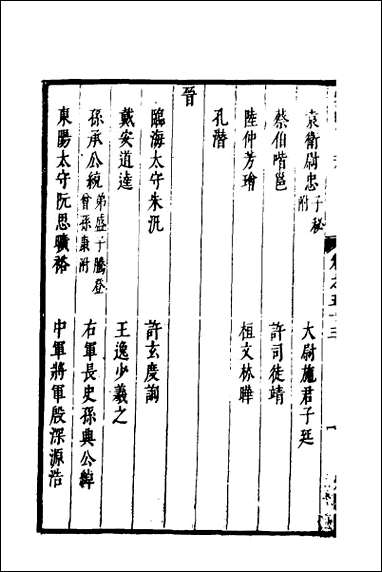 袁衛尉忠 子秘附 大尉施君子延
蔡伯喈邕 許司徒靖
陸仲芳璯 桓文林曄
孔潛
晉
臨海太守朱汎 許玄度詢
戴安道逵 王逸少羲之
孫承公統 弟盛子騰登曾孫康附 右軍長史孫興公綽
東陽太守阮思曠裕 中軍將軍殷深源浩